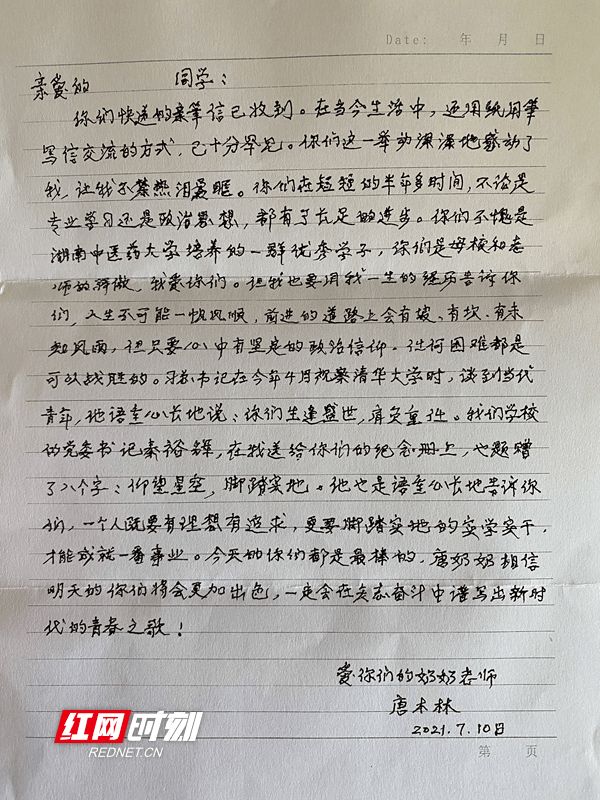 Date: 年 月 日
亲爱的 同学：
你们快递的亲笔信已收到。在当今生活中，还用纸用笔
写信交流的方式，已十分罕见。你们这一举动深深地感动了
我，让我不禁热泪盈眶。你们在短短的半年多时间，不论是
专业学习还是政治思想，都有了长足的进步。你们不愧是
湖南中医药大学培养的一群优秀学子，你们是母校和老
师的骄傲，我爱你们。但我也要用我一生的经历告诉你
们，人生不可能一帆风顺，前进的道路上会有坡、有坎、有未
知风雨，但只要心中有坚定的政治信仰，任何困难都是
可以战胜的。习总书记在今年4月视察清华大学时，谈到当代
青年，他语重心长地说：你们生逢盛世，肩负重任。我们学校
的党委书记秦裕辉，在我送给你们的纪念册上，也题赠
了八个字：仰望星空，脚踏实地。他也是语重心长地告诉你
们，一个人既要有理想有追求，更要脚踏实地的实学实干，
才能成就一番事业。今天的你们都是最棒的，唐奶奶相信
明天的你们将会更加出色，一定会在矢志奋斗中谱写出新时
代的青春之歌！
爱你们的奶奶老师
唐木林
2021.7.10日
红网时刻
REDNET.CN
第 页